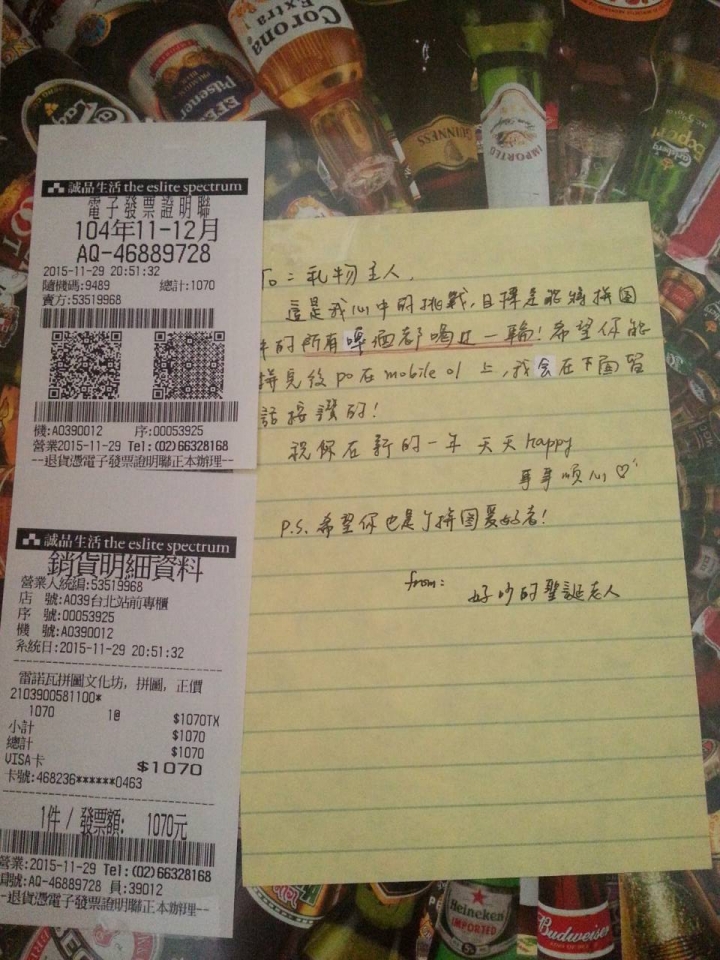 Corona
Extra
Pilsener
EFES
GUINNESS
IMPORTED
Export
Carlsberg
誠品生活 the eslite spectrum
電子發票證明聯
104年11-12月
AQ-46889728
2015-11-29 20:51:32
隨機碼:9489 總計:1070
賣方:53519968
機:A0390012 序:00053925
營業2015-11-29 Tel:(02)66328168
--退貨憑電子發票證明聯正本辦理--
誠品生活 the eslite spectrum
銷貨明細資料
營業人統編:53519968
店 號:A039台北站前專櫃
序 號:00053925
機 號:A0390012
系統日:2015-11-29 20:51:32
雷諾瓦拼圖文化坊, 拼圖, 正價
2103900581100*
1070 1@ $1070TX
小計 $1070
總計 $1070
VISA卡 $1070
卡號:468236******0463
1件 / 發票額: 1070元
營業:2015-11-29 Tel:(02)66328168
號:AQ-46889728 員:39012
--退貨憑電子發票證明聯正本辦理--
To:礼物主人,
這是我心中的挑戰,目標是能將拼图
的所有啤酒都喝过一輪!希望你能
拼完後po在mobile 01上,我会在下面留
話按讚的!
祝你在新的一年 天天happy
事事順心♡
P.S.希望你也是个拼图爱好者!
from:
好吵的聖誕老人
Heineken
IMPORTED
Budweiser